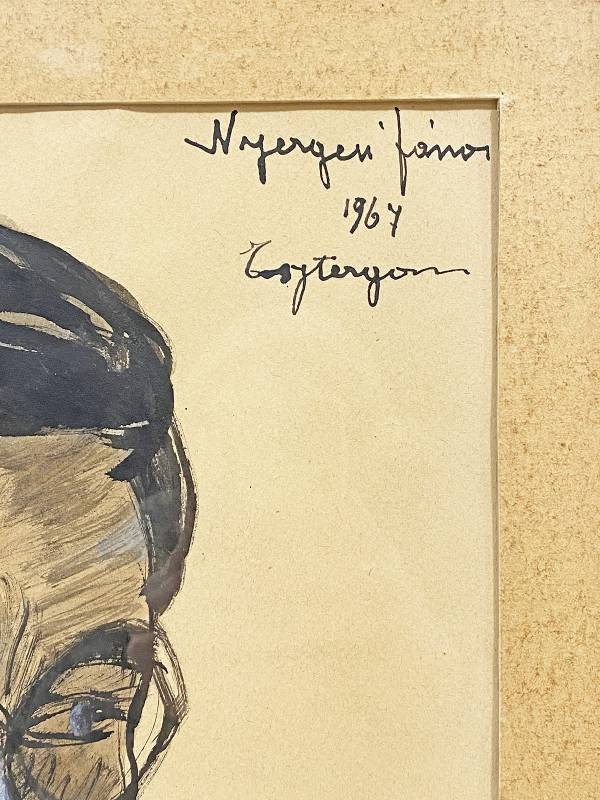 Nyergesi János
1967
Esztergom